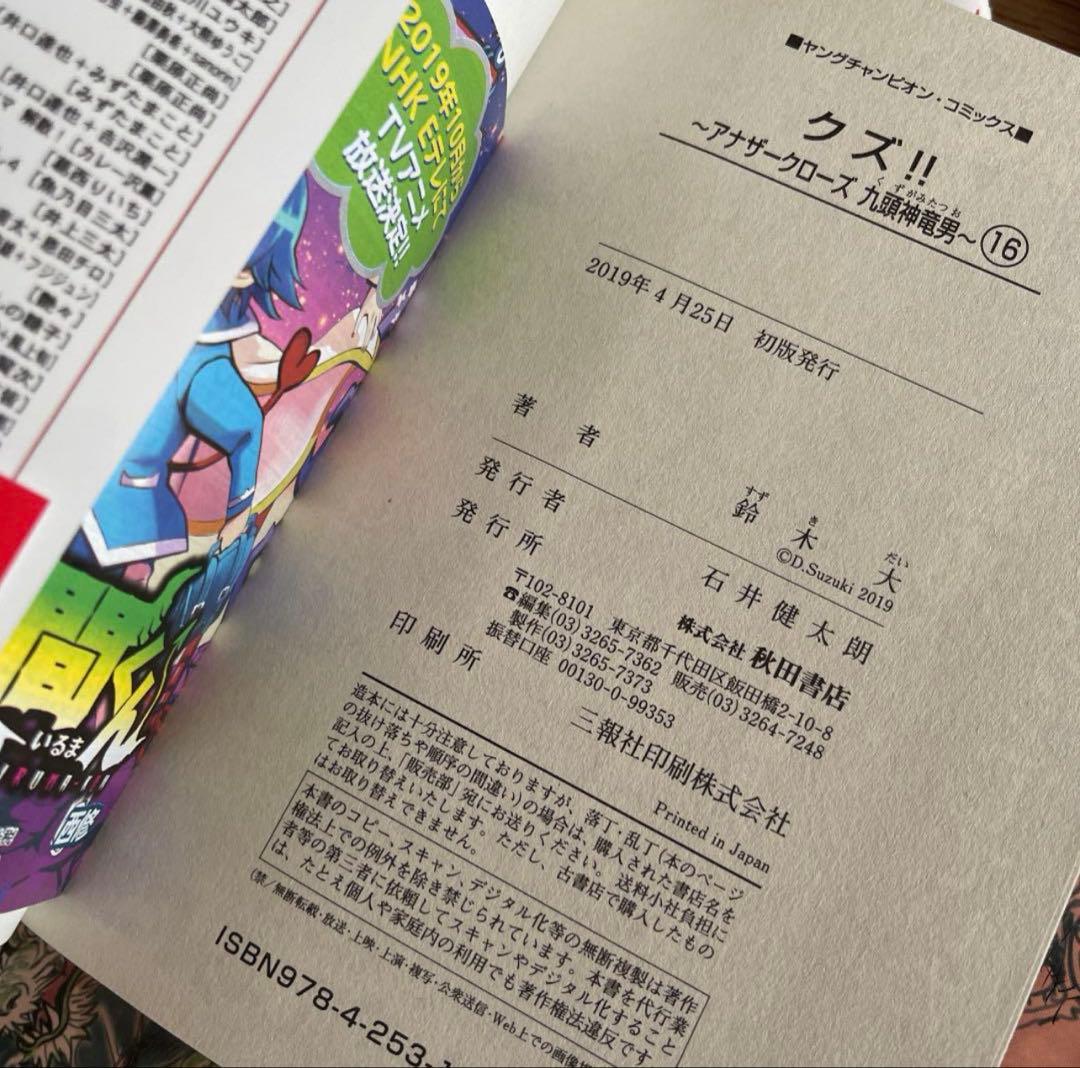 ■ヤングチャンピオン・コミックス■
クズ!!
～アナザークローズ 九頭神竜男～ 16
くずがみたつお
2019年4月25日 初版発行
著者
鈴木大
すずきだい
©D.Suzuki 2019
発行者
石井健太朗
発行所
株式会社 秋田書店
〒102-8101 東京都千代田区飯田橋2-10-8
☎編集(03)3265-7362 販売(03)3264-7248
製作(03)3265-7373
振替口座 00130-0-99353
印刷所
三報社印刷株式会社
Printed in Japan
造本には十分注意しておりますが、落丁・乱丁(本のページ
の抜け落ちや順序の間違い)の場合は、購入された書店名を
記入の上、「販売部」宛にお送りください。送料小社負担に
てお取り替えいたします。ただし、古書店で購入したもの
はお取り替えできません。
本書のコピー、スキャン、デジタル化等の無断複製は著作
権法上での例外を除き禁じられています。本書を代行業
者等の第三者に依頼してスキャンやデジタル化すること
は、たとえ個人や家庭内の利用でも著作権法違反です
(禁/無断転載・放送・上映・上演・複写・公衆送信・Web上での画像
ISBN978-4-253-
2019年10月から
NHK Eテレにて
TVアニメ
放送決定!!
間くん
いるま
西修
[みずたまこと]
[カレー沢薫]
[葛西りいち]
[魚乃目三太]
[井上三太]